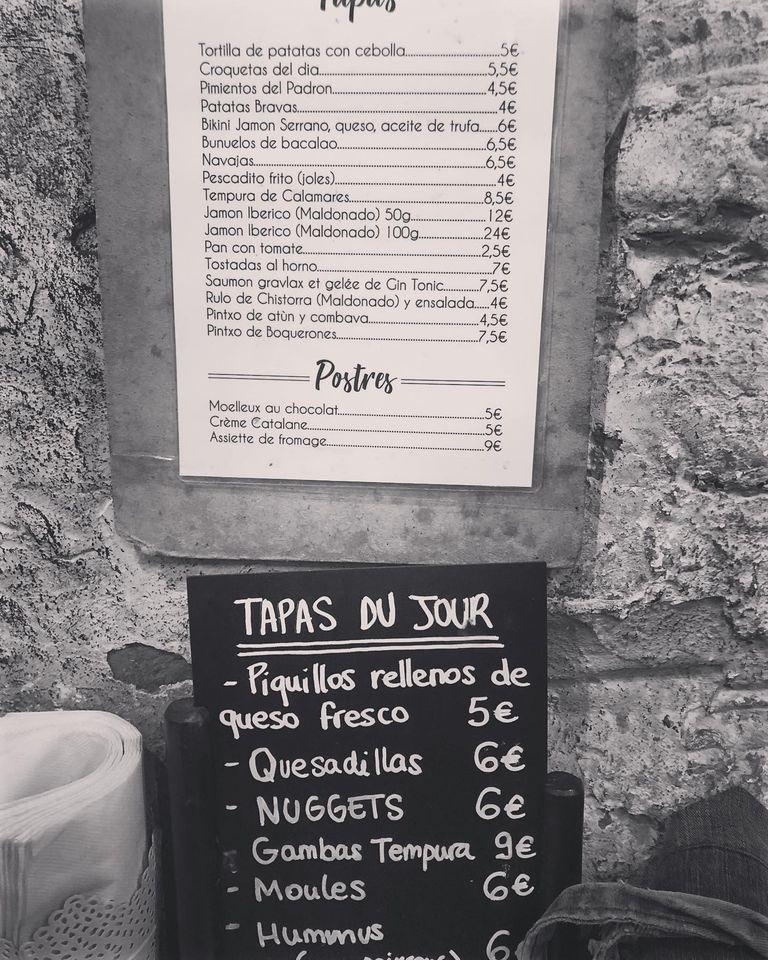 Tapas
Tortilla de patatas con cebolla.....5€
Croquetas del dia.....5,5€
Pimientos del Padron.....4,5€
Patatas Bravas.....4€
Bikini Jamon Serrano, queso, aceite de trufa.....6€
Bunuelos de bacalao.....6,5€
Navajas.....6,5€
Pescadito frito (joles).....4€
Tempura de Calamares.....8,5€
Jamon Iberico (Maldonado) 50g.....12€
Jamon Iberico (Maldonado) 100g.....24€
Pan con tomate.....2,5€
Tostadas al horno.....7€
Saumon gravlax et gelée de Gin Tonic.....7,5€
Rulo de Chistorra (Maldonado) y ensalada.....4€
Pintxo de atùn y combava.....4,5€
Pintxo de Boquerones.....7,5€
Postres
Moelleux au chocolat.....5€
Crème Catalane.....5€
Assiette de fromage.....9€
TAPAS DU JOUR
- Piquillos rellenos de
queso fresco 5€
- Quesadillas 6€
- NUGGETS 6€
Gambas Tempura 9€
- Moules 6€
- Hummus 6